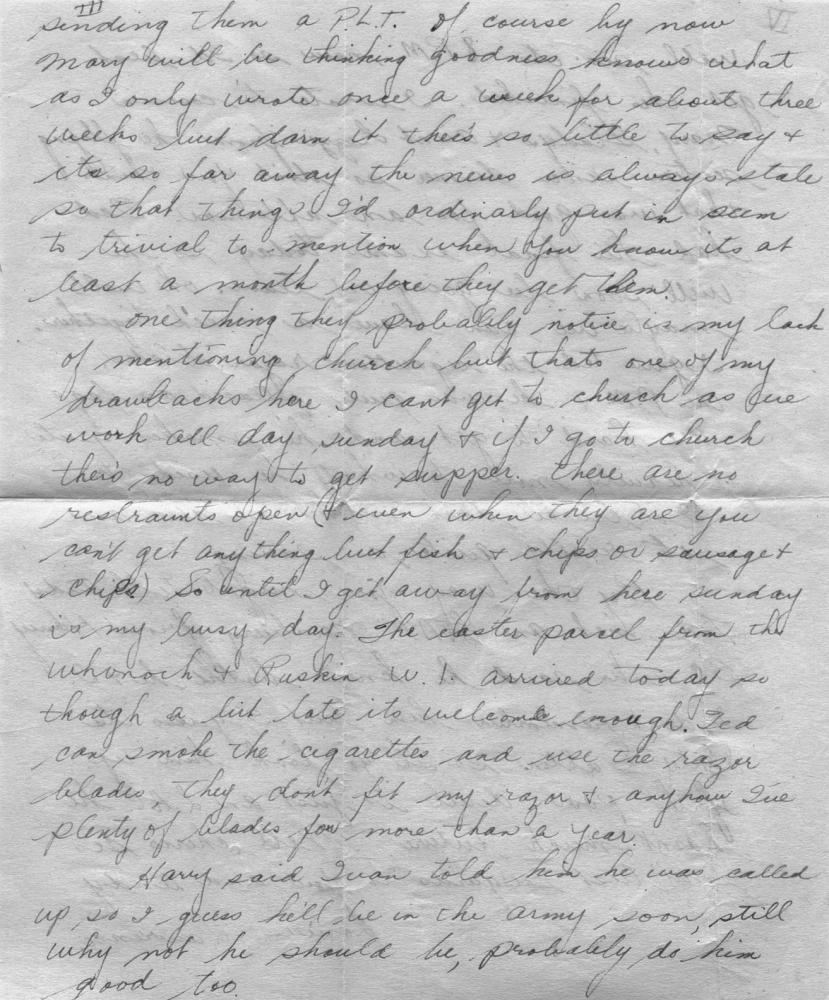 III
sending them a P.L.T. of course by now
Mary will be thinking goodness knows what
as I only wrote once a week for about three
weeks but darn it theis so little to say +
its so far away the news is always stale
so that things I'd ordinarly put in seem
to trivial to mention when you know its at
least a month before they get them.
one thing they probably notice is my lack
of mentioning church but thats one of my
drawbacks here I cant get to church as we
work all day sunday + if I go to church
theis no way to get supper. there are no
restraunts open (+ even when they are you
can't get anything but fish + chips or sausage +
chips) So until I get away from here sunday
is my busy day. The easter parcel from the
whonock + Ruskin W. I. arrived today so
though a bit late its welcome enough. Ted
can smoke the cigarettes and use the razor
blades, they don't fit my razor + anyhow I've
plenty of blades for more than a year.
Harry said Ivan told him he was called
up so I guess he'll be in the army soon, still
why not he should be, probably do him
good too.